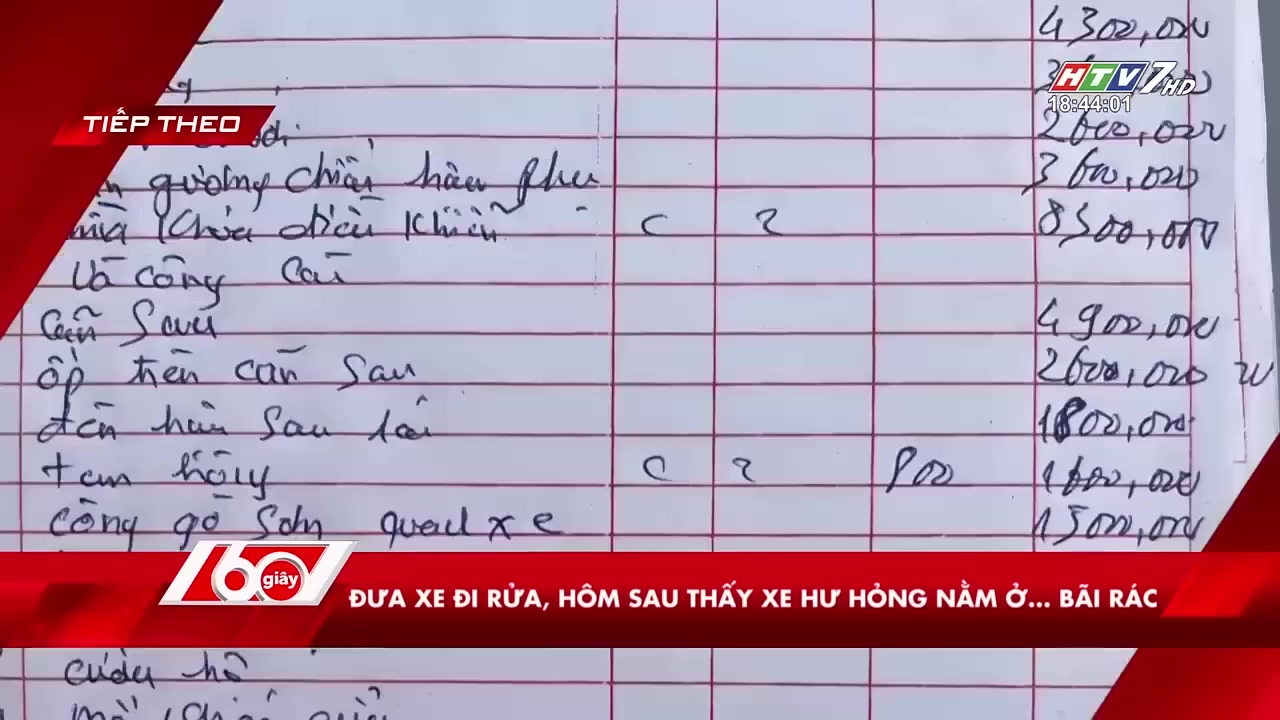 4300,000
HTV7 HD
18:44:01
TIẾP THEO
2600,000
gương chiếu hậu phụ 3600,000
khóa điều khiển c 2 8500,000
và công cài
cản sau 4900,000
ốp trên cản sau 2600,000
đèn hậu sau lái 1800,000
tem hông c 2 800 1600,000
công gò sơn quanh xe 15000,000
60 giây
ĐƯA XE ĐI RỬA, HÔM SAU THẤY XE HƯ HỎNG NẰM Ở... BÃI RÁC